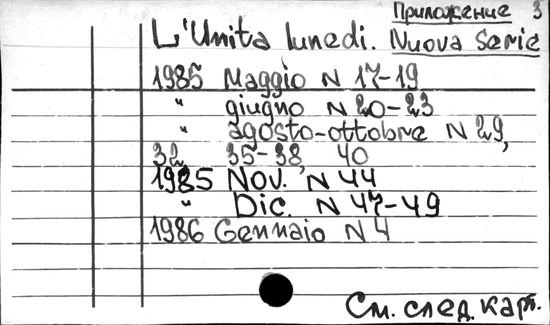 Приложение 3
L'Unita lunedi. Nuova Serie
1985 Maggio N 17-19
" giugno N 20-23
" agosto-ottobre N 29,
32, 35-38, 40
1985 Nov. N 44
" Dic. N 47-49
1986 Gennaio N 4
См. след. карт.